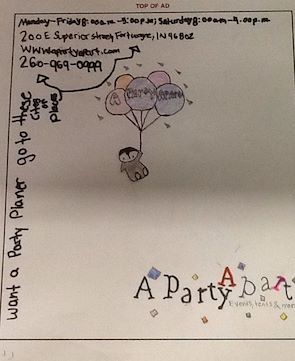 TOP OF AD
Monday-Friday 8:00a.m-5:00P.m; Saturday 8:00am-4:00.p.m
200 E Superior street Fortwayne, IN 46802
WWW.apartyapart.com
260-969-0999
want a Party Planer go to these
City of Places
A Party Apart
A Party Apart
Events, tents & more